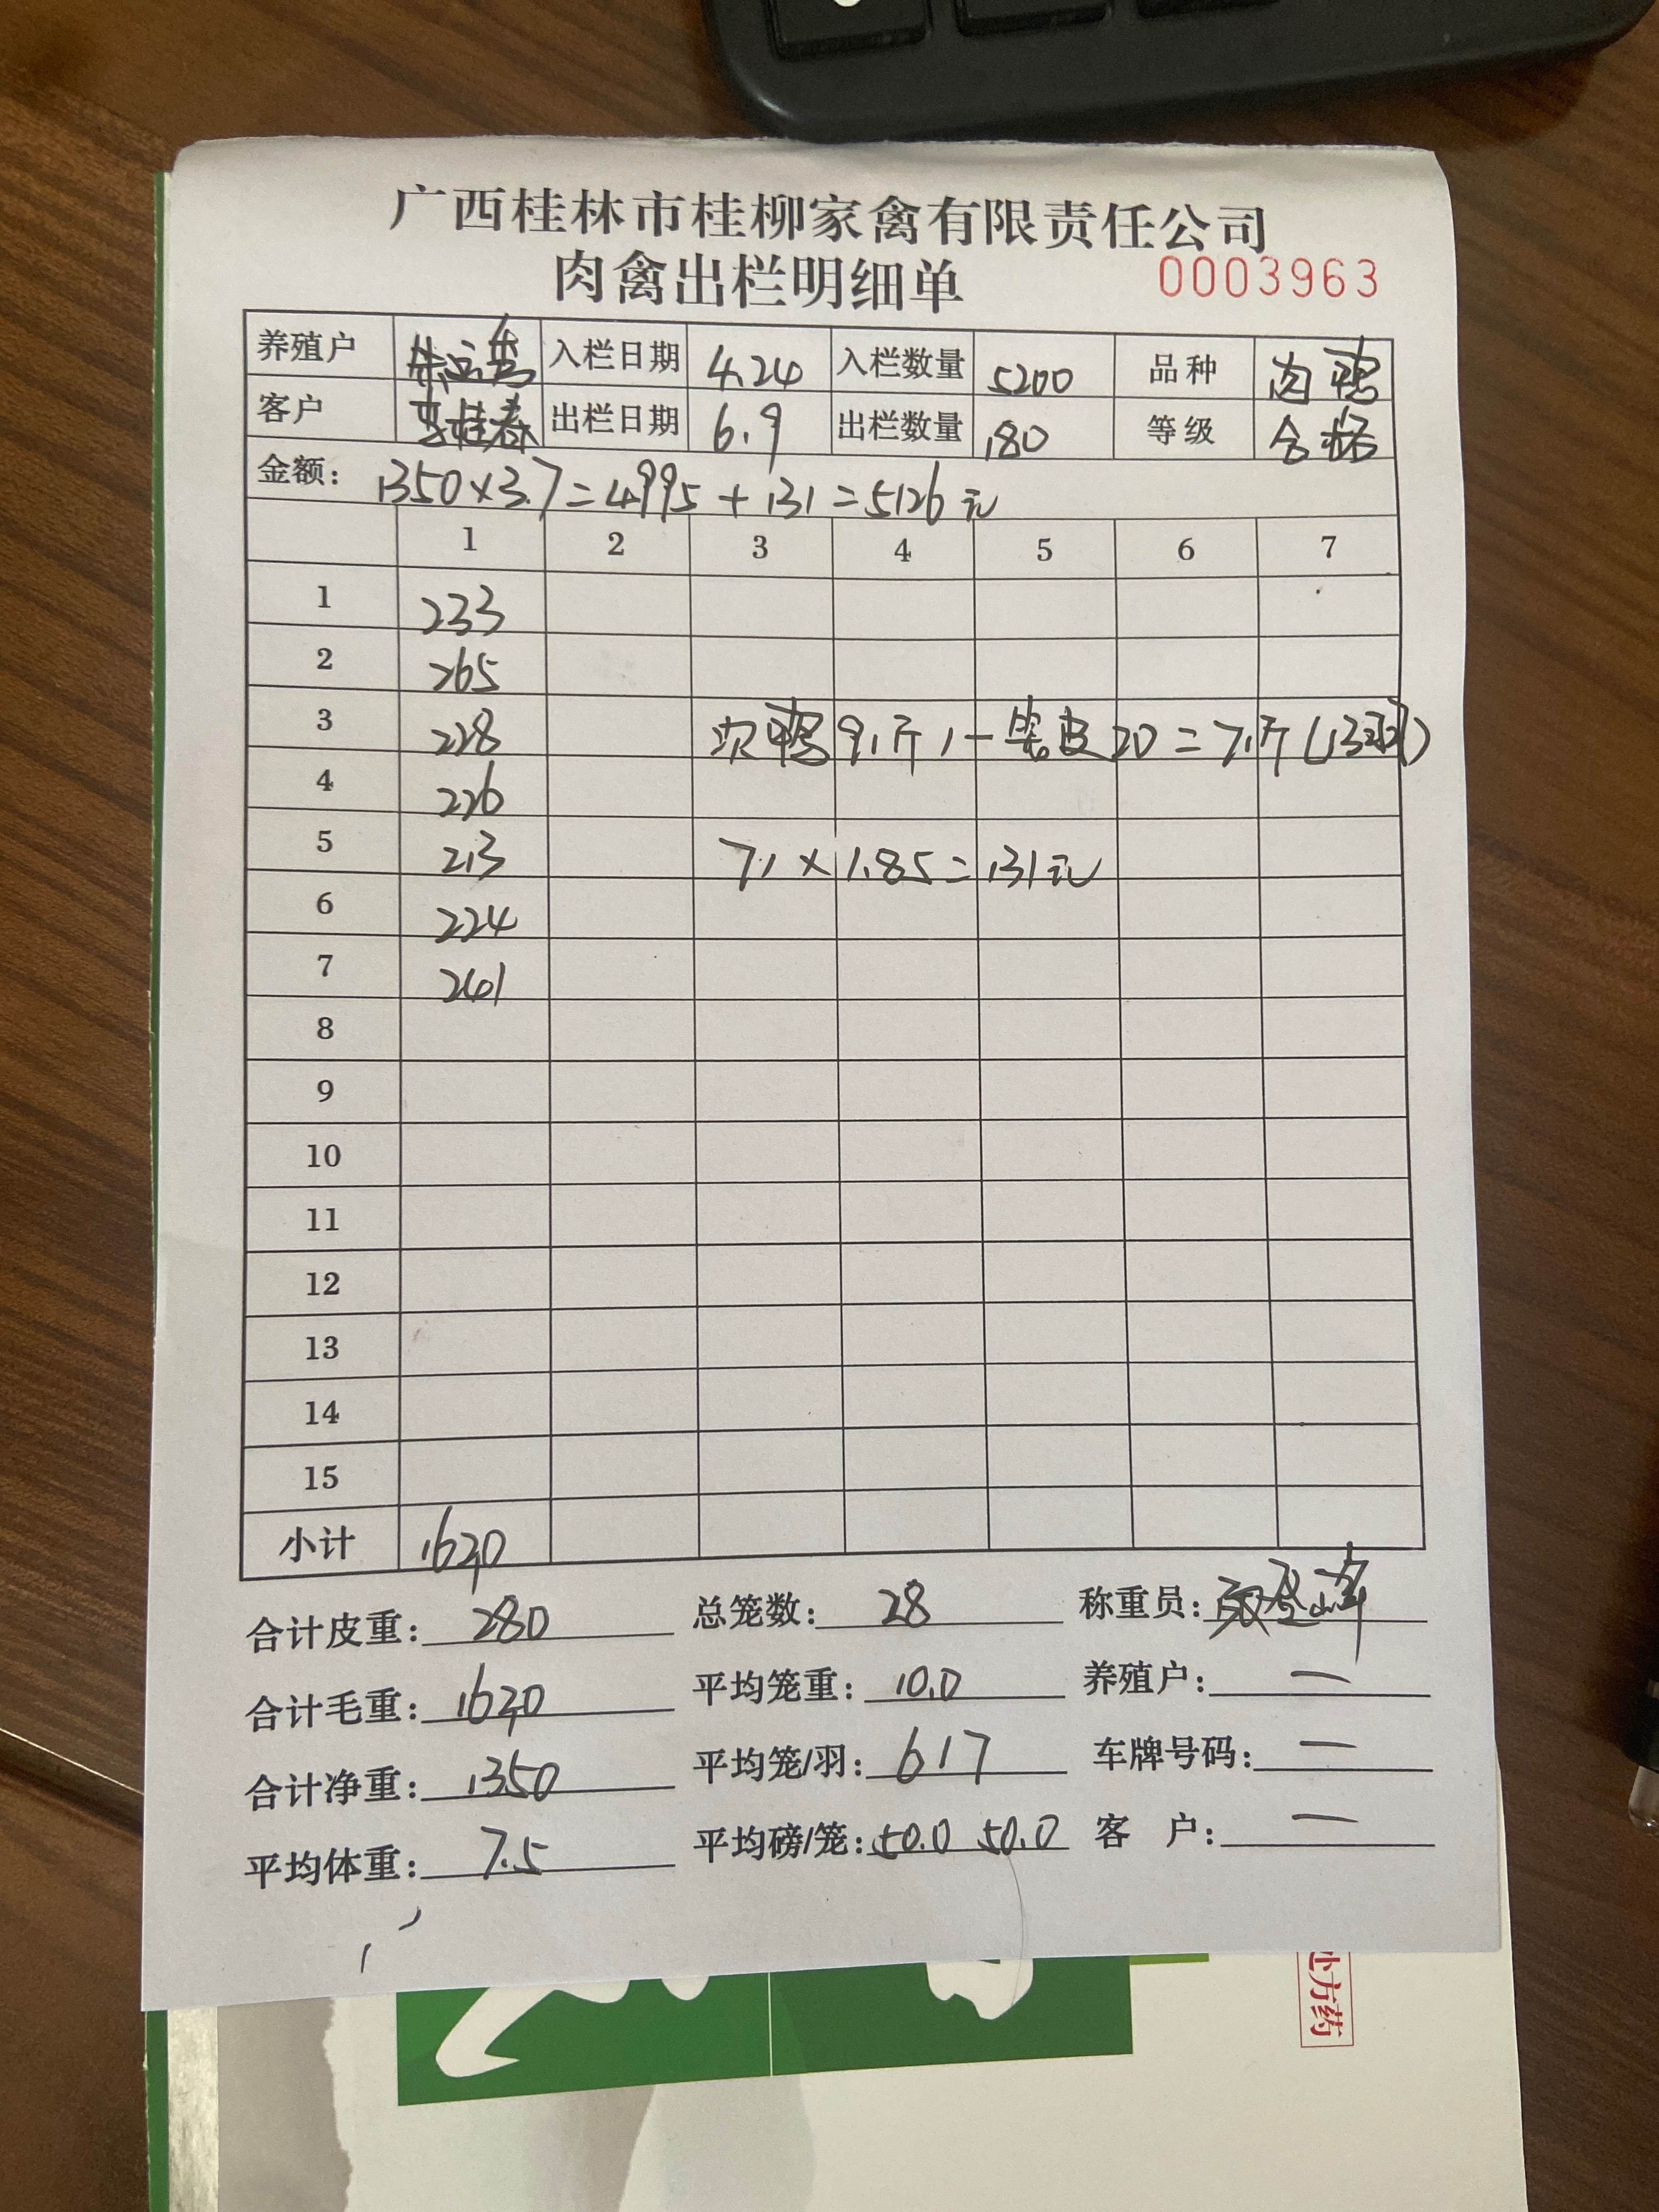 广西桂林市桂柳家禽有限责任公司
肉禽出栏明细单 0003963
养殖户 入栏日期 4.24 入栏数量 5200 品种 肉鸭
客户 李桂春 出栏日期 6.9 出栏数量 180 等级 合格
金额: 1350×3.7=4995+131=5126元
1 2 3 4 5 6 7
1 233
2 265
3 228 次鸭91斤-笼皮20=71斤(13羽)
4 226
5 213 71×1.85=131元
6 224
7 241
8
9
10
11
12
13
14
15
小计 1630
合计皮重: 280 总笼数: 28 称重员:
合计毛重: 1630 平均笼重: 10.0 养殖户: 一
合计净重: 1350 平均笼/羽: 6 1 7 车牌号码: 一
平均体重: 7.5 平均磅/笼: 50.0 50.0 客 户: 一
处方药